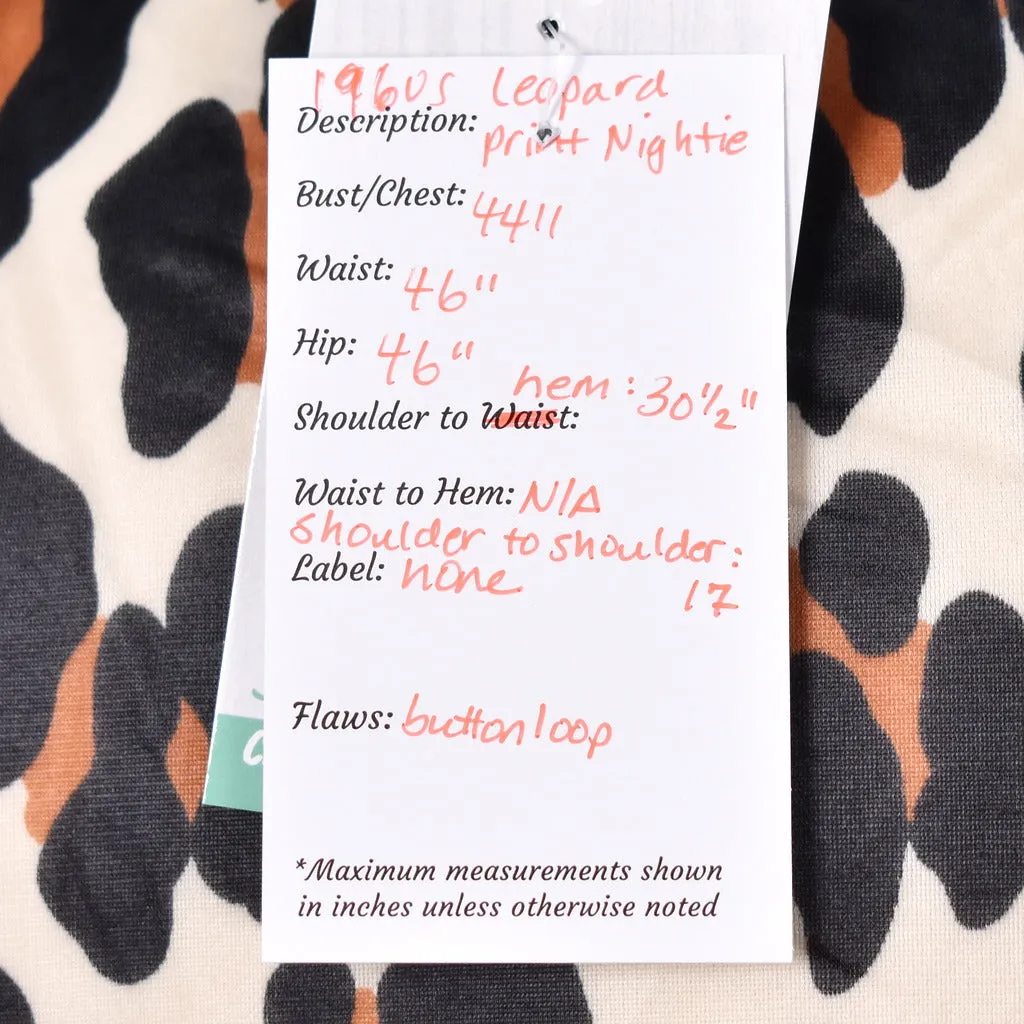 1960s Leopard
Description: print Nightie
Bust/Chest: 44"
Waist: 46"
Hip: 46"
hem: 30 1/2"
Shoulder to Waist:
Waist to Hem: N/A
shoulder to shoulder:
Label: none 17
Flaws: button loop
*Maximum measurements shown
in inches unless otherwise noted